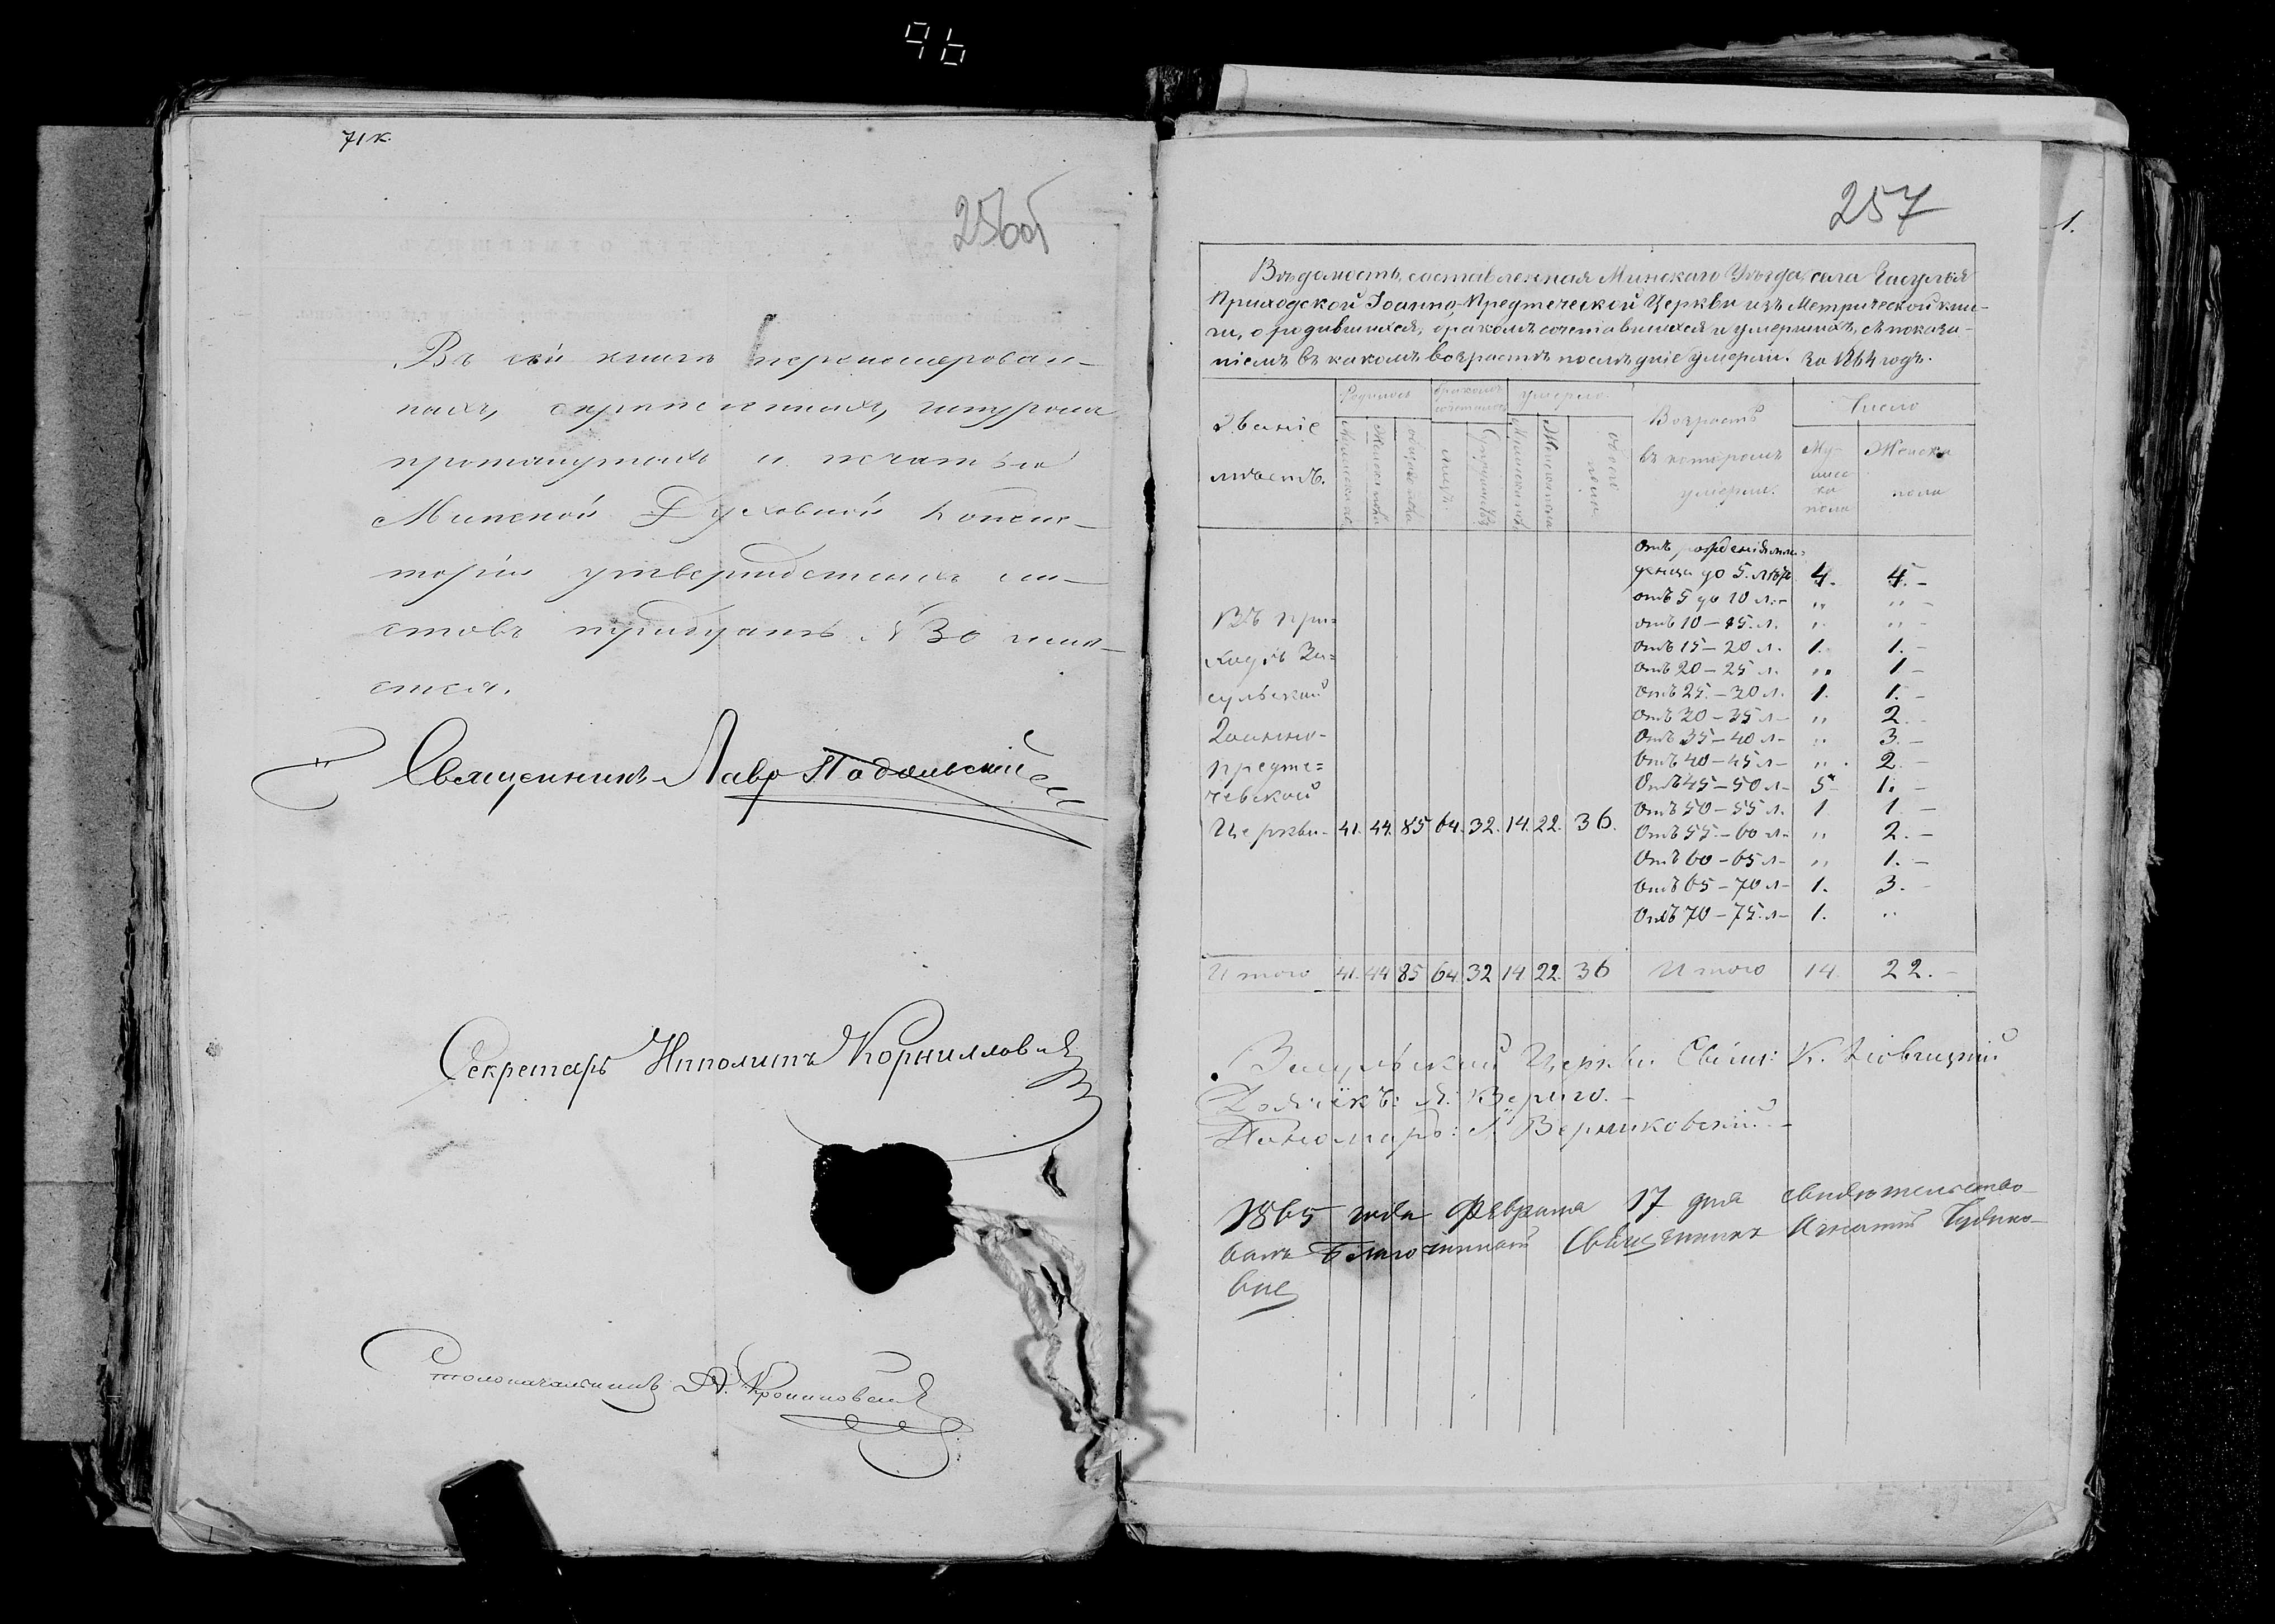 96
71 к.
256об
Въ сей книгѣ перенумерован-
ныхъ, скрѣпленныхъ, шнуромъ
протянутыхъ и печатью
Минской Духовной Консис-
торіи утвержденныхъ ли-
стовъ тридцать № 30 чис-
Священникъ Лавр Подольскій
Секретарь Ипполитъ Корнилов
Столоначальникъ
257
1.
Вѣдомость, составленная Минскаго Уѣзда, села Засулья
Приходской Іоанно-Предтеческой Церкви изъ Метрической кни-
ги, о родившихся, бракомъ сочетавшихся и умершихъ, съ показа-
ніемъ въ какомъ возрастѣ послѣдніе умерли. За 1864 годъ.
Званіе мѣстъ.
Родилось
Мужеска пола
Женска пола
Обоего пола
Бракомъ сочеталось
лицъ
Супружествъ
Умерло
Мужеска пола
Женска пола
Обоего пола
Возрастъ въ которомъ умерли.
Число
Му-жеска пола
Женска пола
Въ При-
ходѣ За-
сульской
Іоанно-
Предте-
чевской
Церкви - 41. 44. 85 64. 32. 14. 22. 36.
Отъ рожденія мла-
денца до 5. лѣтъ 4. 4. -
Отъ 5 до 10 л. - „ „ -
Отъ 10 - 15. л. „ „ -
Отъ 15 - 20 л. 1. 1. -
Отъ 20 - 25 л. „ 1 -
Отъ 25. - 30 л. 1. 1. -
Отъ 30 - 35 л - „ 2. -
Отъ 35 - 40 л - „ 3. -
Отъ 40 - 45 л - „ 2. -
Отъ 45 - 50 л - 5 1. -
Отъ 50 - 55 л. 1 1 -
Отъ 55. - 60 л - „ 2. -
Отъ 60 - 65 л - „ 1. -
Отъ 65 - 70 л - 1. 3. -
Отъ 70 - 75. л - 1. „
Итого 41. 44 85 64. 32 14 22. 36 Итого 14. 22. -
Засульской Церкви Свящ: К.
Дьячекъ: А: Вериго. -
Пономарь: Верниковскій -
1865 года Февраля 17 дня свидѣтельство-
валъ Благочинный Священникъ Игнатій